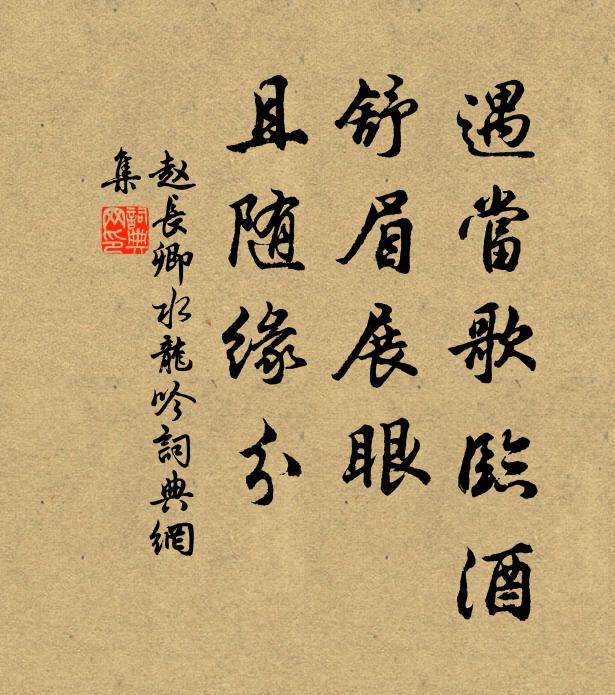 遇當歌臨酒
舒眉展眼
且随缘分
赵長卿水龍吟詞典網
集
詞典网印